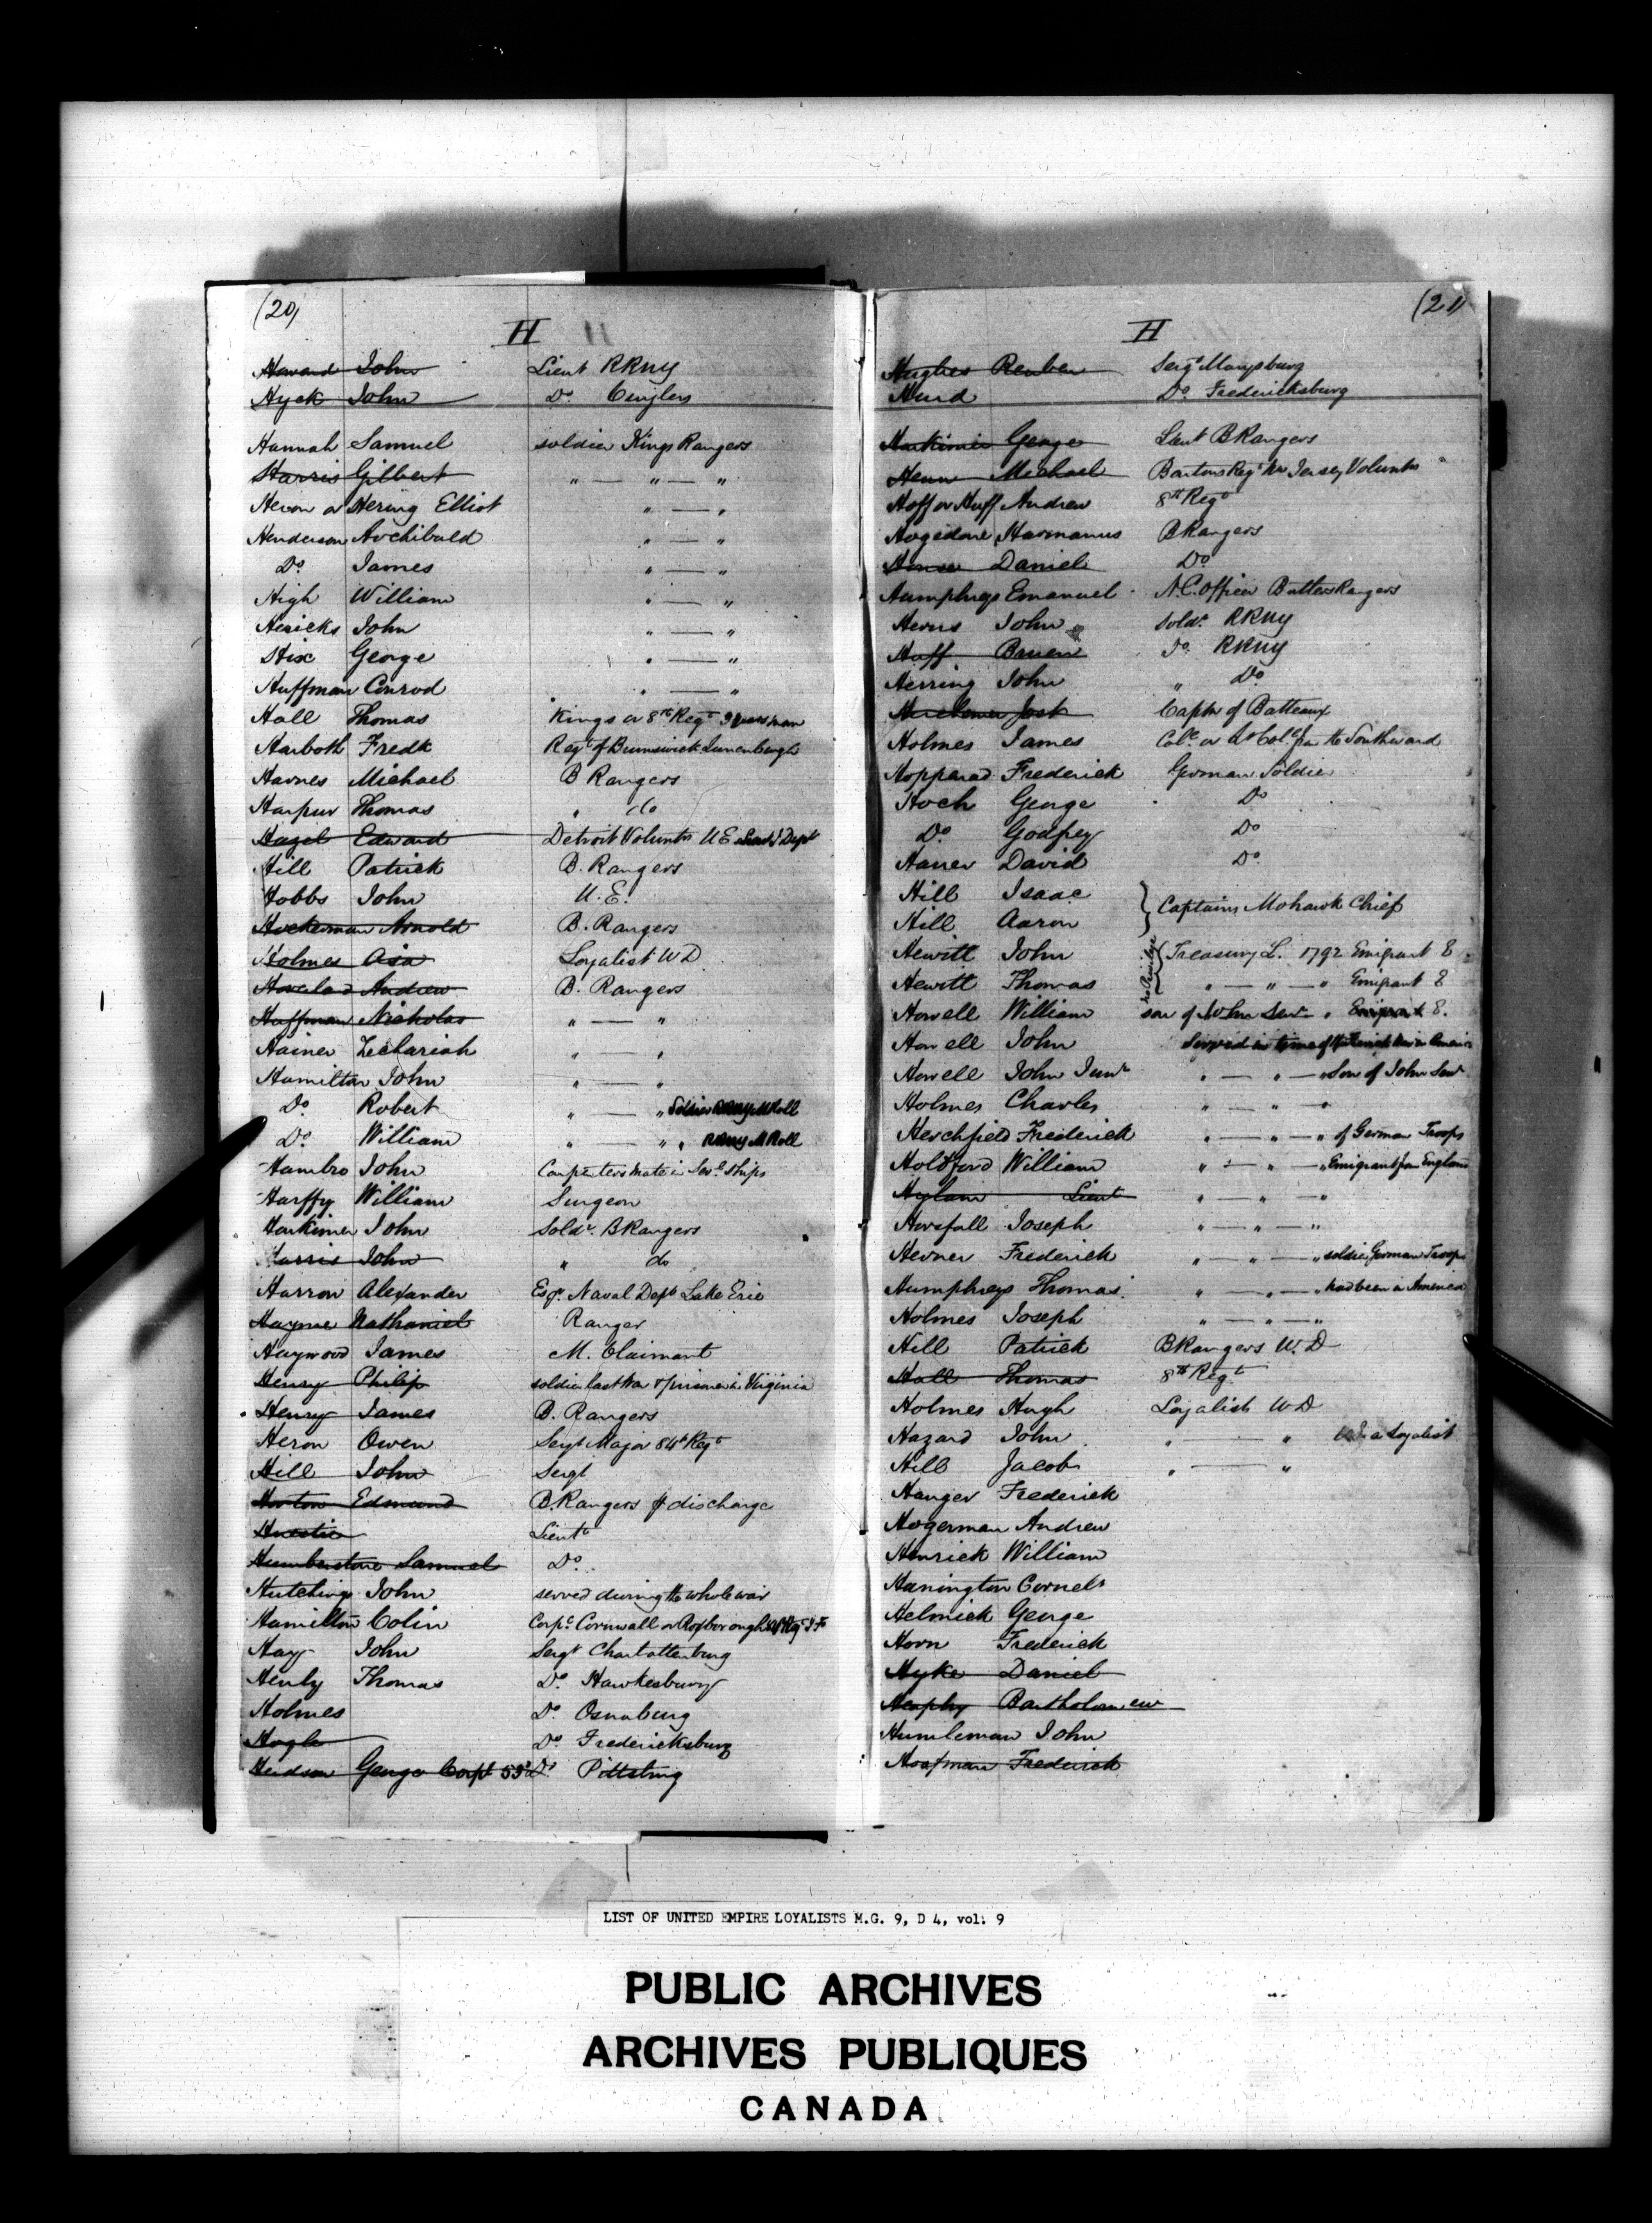 (20)
H
Howard John Lieut RRNY
Hyck John Do
Hannah Samuel soldier Kings Rangers
Harris Gilbert " — " — "
Heron or Hering Elliot " — "
Henderson Archibald " — "
Do James " — "
High William " — "
Hericks John " — "
Hix George " — "
Huffman Conrod " — "
Hall Thomas Kings or 8th Regt 9 years man
Harboth Fredk Regt of Brunswick Lunenburgh
Harnes Michael B Rangers
Harpur Thomas " do
Hazel Edward Detroit Volunts UE Dept
Hill Patrick B. Rangers
Hobbs John U.E.
Hockerman Arnold B. Rangers
Holmes Asa Loyalist WD
Andrew B. Rangers
Huffman Nicholas " — "
Hainer Zechariah " — "
Hamilton John " — "
Do Robert " — " Soldier RRNY M Roll
Do William " — " " RRNY M Roll
Hambro John Carpenters mate in Sevl ships
Harffy William Surgeon
Harkimer John Soldr. BRangers
Harris John " do
Harrow Alexander Esqr Naval Dept Lake Erie
Hayne Nathaniel Ranger
Haywood James M. Claimant
Henry Philip soldier last War & prisoner in Virginia
Henry James B. Rangers
Heron Owen Sergt Major 84th Regt
Hill John Sergt
Horton Edmund B.Rangers & discharge
Lieutt
Humberstone Samuel Do.
Hutchings John served during the whole war
Hamilton Colin Corpl Cornwall or Roxborough
Hay John Sergt Charlottenburg
Henly Thomas Do Hawkesbury
Holmes Do Osnaburg
Hogle Do Fredericksburg
Hudson George Corpl 53d Do Pittsburg
(21)
H
Hughes Reuben Sergt Marysburg
Hurd Do Fredericksburg
Harkimer George Lieut BRangers
Henn Michael Bartons Regt Nw Jersey Volunts
Hoff or Huff Andrew 8th Regt
Hogedone Harmanus BRangers
House Daniel Do
Humphreys Emanuel N.C.officer Butlers Rangers
Herns John soldr. RRNY
Huff Bruen Do. RRNY
Herring John " Do
Herchmer Jost Captn of Batteaux
Holmes James Coll or Lt Coll from the Southward
Hopparad Frederick German Soldier
Hoch George Do
Do. Godfrey Do
Haner David Do
Hill Isaac
Hill Aaron } Captains Mohawk Chief
Hewitt John Treasury L. 1792 Emigrant E
Hewitt Thomas " — " — " Emigrant E
Howell William son of John Senr " Emigrant E.
Howell John Served in time of
Howell John Junr " — " — " Son of John Senr
Holmes Charles " — " — "
Herchfield Frederick " — " — " of German Troops
Holdford William " — " — " Emigrant from England
Hylam Lieut " — " — "
Horsfall Joseph " — " — "
Hevner Frederick " — " — " soldier German Troops
Humphreys Thomas " — " — " had been in America
Holmes Joseph " — " — "
Hill Patrick BRangers W.D
Hall Thomas 8th Regt
Holmes Hugh Loyalist WD
Hazard John " — " a Loyalist
Hill Jacob " — "
Hanger Frederick
Hogerman Andrew
Henrick William
Hanington Cornels
Helmick George
Horn Frederick
Hyke Daniel
Bartholomew
Humleman John
Hoofman Frederick
LIST OF UNITED EMPIRE LOYALISTS M.G. 9, D 4, vol. 9
PUBLIC ARCHIVES
ARCHIVES PUBLIQUES
CANADA